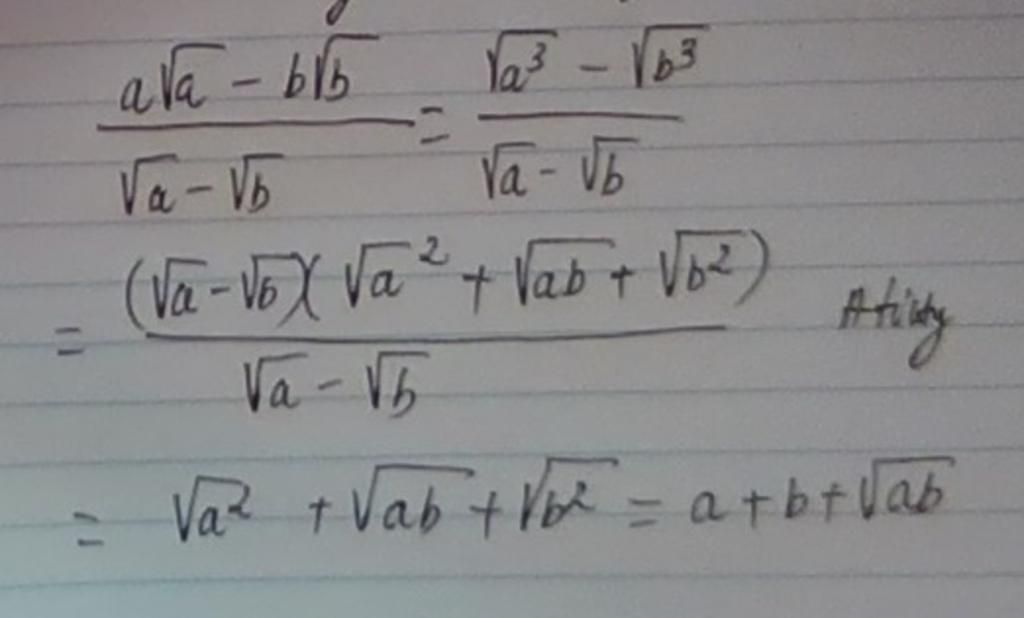 a√a - b√b / √a - √b = √a³ - √b³ / √a - √b
= (√a - √b)(√a² + √ab + √b²) / √a - √b
= √a² + √ab + √b² = a + b + √ab